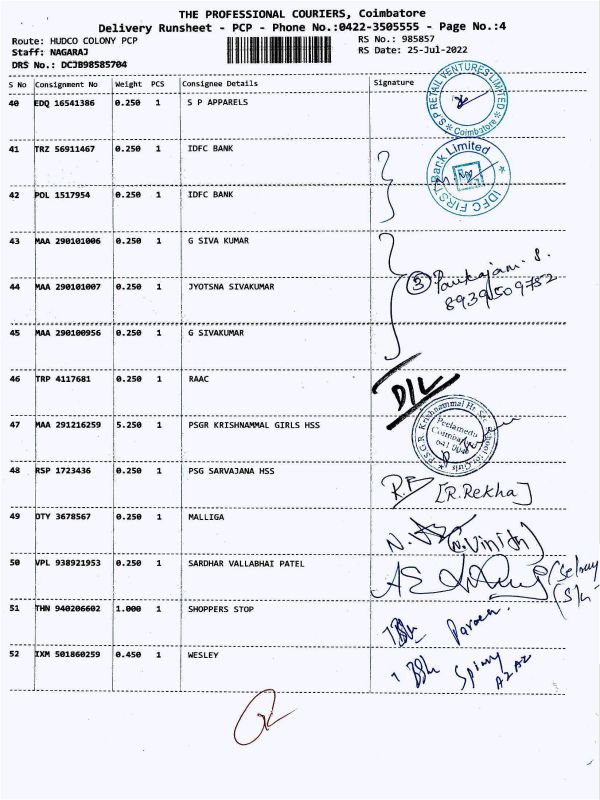 THE PROFESSIONAL COURIERS, Coimbatore
Delivery Runsheet - PCP - Phone No.:0422-3505555 - Page No.:4
Route: HUDCO COLONY PCP RS No.: 985857
Staff: NAGARAJ RS Date: 25-Jul-2022
DRS No.: DCJB98585704
S No Consignment No Weight PCS Consignee Details Signature
40 EDQ 16541386 0.250 1 S P APPARELS
S.P RETAIL VENTURES LIMITED
Coimbatore
41 TRZ 56911467 0.250 1 IDFC BANK
IDFC FIRST Bank Limited
42 POL 1517954 0.250 1 IDFC BANK
43 MAA 290101006 0.250 1 G SIVA KUMAR
44 MAA 290101007 0.250 1 JYOTSNA SIVAKUMAR
3 Pankajam. S.
8939509752
45 MAA 290100956 0.250 1 G SIVAKUMAR
46 TRP 4117681 0.250 1 RAAC
D/L
47 MAA 291216259 5.250 1 PSGR KRISHNAMMAL GIRLS HSS
P.S.G.R. Krishnammal Hr. Sec. School for Girls
Peelamedu
Coimbatore
48 RSP 1723436 0.250 1 PSG SARVAJANA HSS
[R.Rekha]
49 DTY 3678567 0.250 1 MALLIGA
(N.Vinith)
50 VPL 938921953 0.250 1 SARDHAR VALLABHAI PATEL
51 THN 940206602 1.000 1 SHOPPERS STOP
52 IXM 501860259 0.450 1 WESLEY